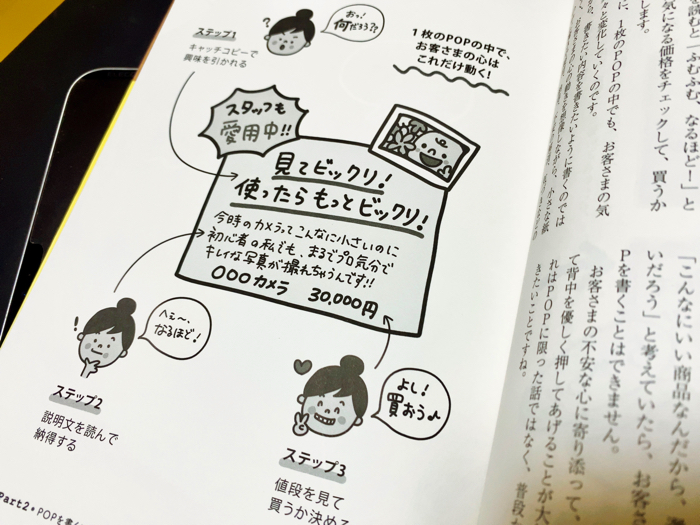 おっ!
何だろう??
ステップ1
キャッチコピーで
興味を引かれる
1枚のPOPの中で、
お客さまの心は
これだけ動く!
スタッフも
愛用中!!
見てビックリ!
使ったらもっとビックリ!
今時のカメラってこんなに小さいのに
初心者の私でも、まるでプロ気分で
キレイな写真が撮れちゃうんです!!
○○○カメラ 30,000円
へぇ〜、
なるほど!
ステップ2
説明文を読んで
納得する
よし!
買おう♪
ステップ3
値段を見て
買うか決める
Part2・POPを書く
ふむふむ、なるほど!」と
気になる価格をチェックして、買うか
します。
に、1枚のPOPの中でも、お客さまの気
々と変化していくのです。
書きたい内容を書きたいように書くのでは
「こんなにいい商品なんだから、
いだろう」と考えていたら、お客さ
Pを書くことはできません。
お客さまの不安な心に寄り添って、
て背中を優しく押してあげることが大
れはPOPに限った話ではなく、普段
きたいことですね。